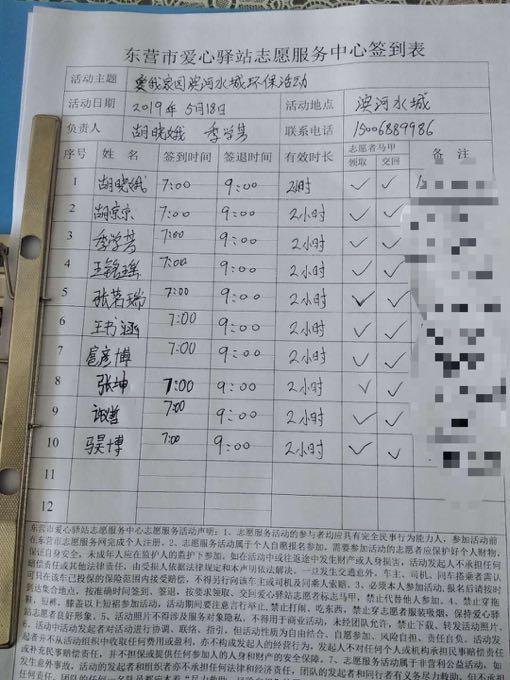 东营市爱心驿站志愿服务中心签到表
活动主题 爱我家园滨河水城环保活动
活动日期 2019年5月18日 活动地点 滨河水城
负责人 胡晓娥 季学芳 联系电话 15006889986
序号 姓名 签到时间 签退时间 有效时长 志愿者马甲 领取 交回 备注
1 胡晓娥 7:00 9:00 2小时 ✓ ✓
2 胡京京 7:00 9:00 2小时 ✓ ✓
3 季学芳 7:00 9:00 2小时 ✓ ✓
4 王铭瑶 7:00 9:00 2小时 ✓ ✓
5 张茗瑞 7:00 9:00 2小时 ✓ ✓
6 王书涵 7:00 9:00 2小时 ✓ ✓
7 扈彦博 7:00 9:00 2小时 ✓ ✓
8 张坤 7:00 9:00 2小时 ✓ ✓
9 7:00 9:00 2小时 ✓ ✓
10 马昊博 7:00 9:00 2小时 ✓ ✓
11
12
东营市爱心驿站志愿服务中心志愿服务活动声明：1、志愿服务活动的参与者均应具有完全民事行为能力人，参加活动前
在东营市志愿服务网完成个人注册。2、志愿服务活动属于个人自愿报名参加，需要参加活动的志愿者应保护好个人财物，
保证自身安全。未成年人应在监护人的监护下参加。如在活动中或往返途中发生财产或人身损害，活动发起人不承担任何
赔偿责任或其他法律责任，由受损人依据法律规定和本声明依法解决。一旦发生交通意外，车主、司机、同车搭乘者需认
可只在该车已投保的保险范围内接受赔偿，不得另行向该车主或司机及同乘人索赔。3、必须本人参加活动，报名后请按时
到达集合地点，按准确时间签到、签退，按要求领取、交回爱心驿站志愿者标志马甲，禁止代替他人参加。4、禁止穿拖
鞋、短裤、膝盖以上短裙参加活动，活动期间要注意言行举止，禁止打闹、吃东西，禁止穿志愿者服装吸烟，保持爱心驿
站志愿者良好形象。5、活动照片不得涉及服务对象隐私，不得用于商业活动，未经团队允许，禁止下载、转发活动照片。
6、活动中活动发起者对活动进行协调、联络、指引，但活动性质为自由结合、自愿参加、风险自担、责任自负。活动发
起者并不从活动组织中收取任何费用或盈利，亦不构成发起人的经营行为，发起人不对任何个人或机构承担民事赔偿责任
或补充民事赔偿责任，并不担保或提供任何参加人的人身和财产的安全保障。7、志愿服务活动属于非营利公益活动，如
发生意外事故，活动的发起者和组织者亦不承担任何法律和经济责任，团队的发起者和同行者有义务尽力救助，但不承担